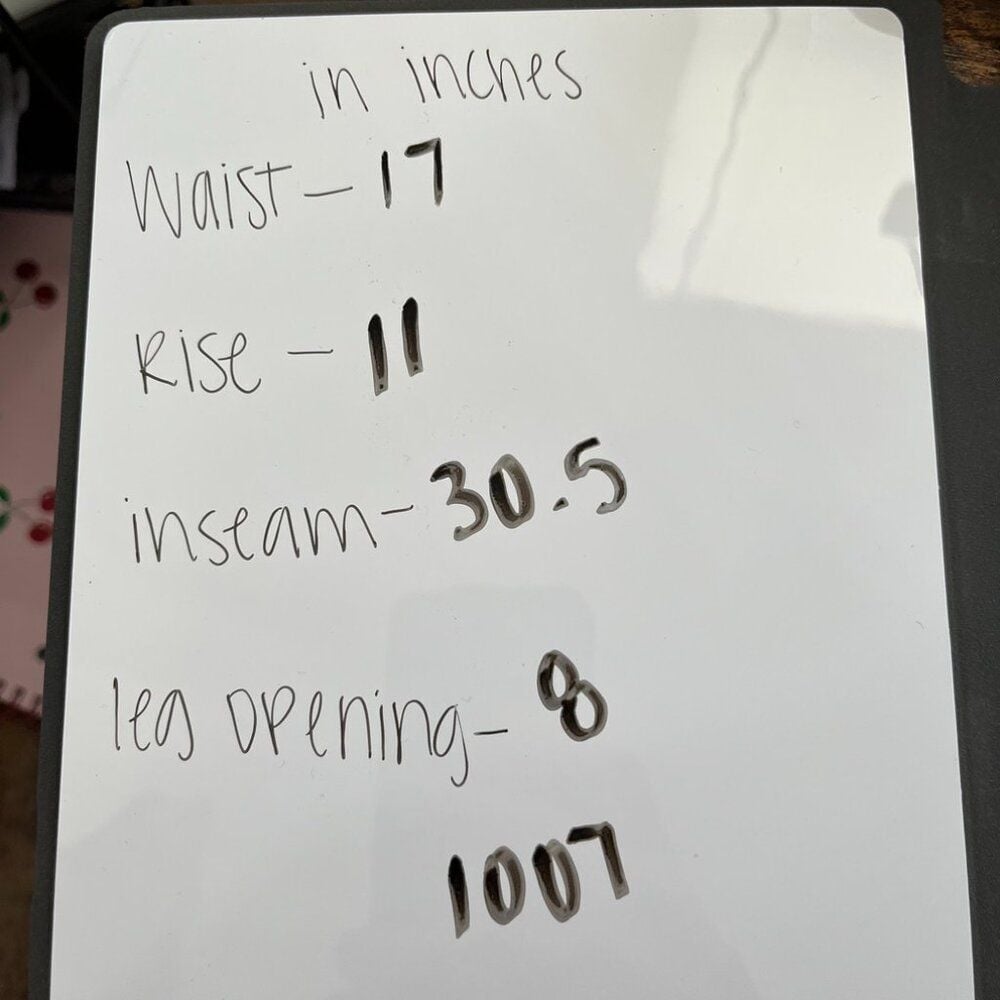 in inches
Waist - 17
Rise - 11
inseam - 30.5
leg opening - 8
1007